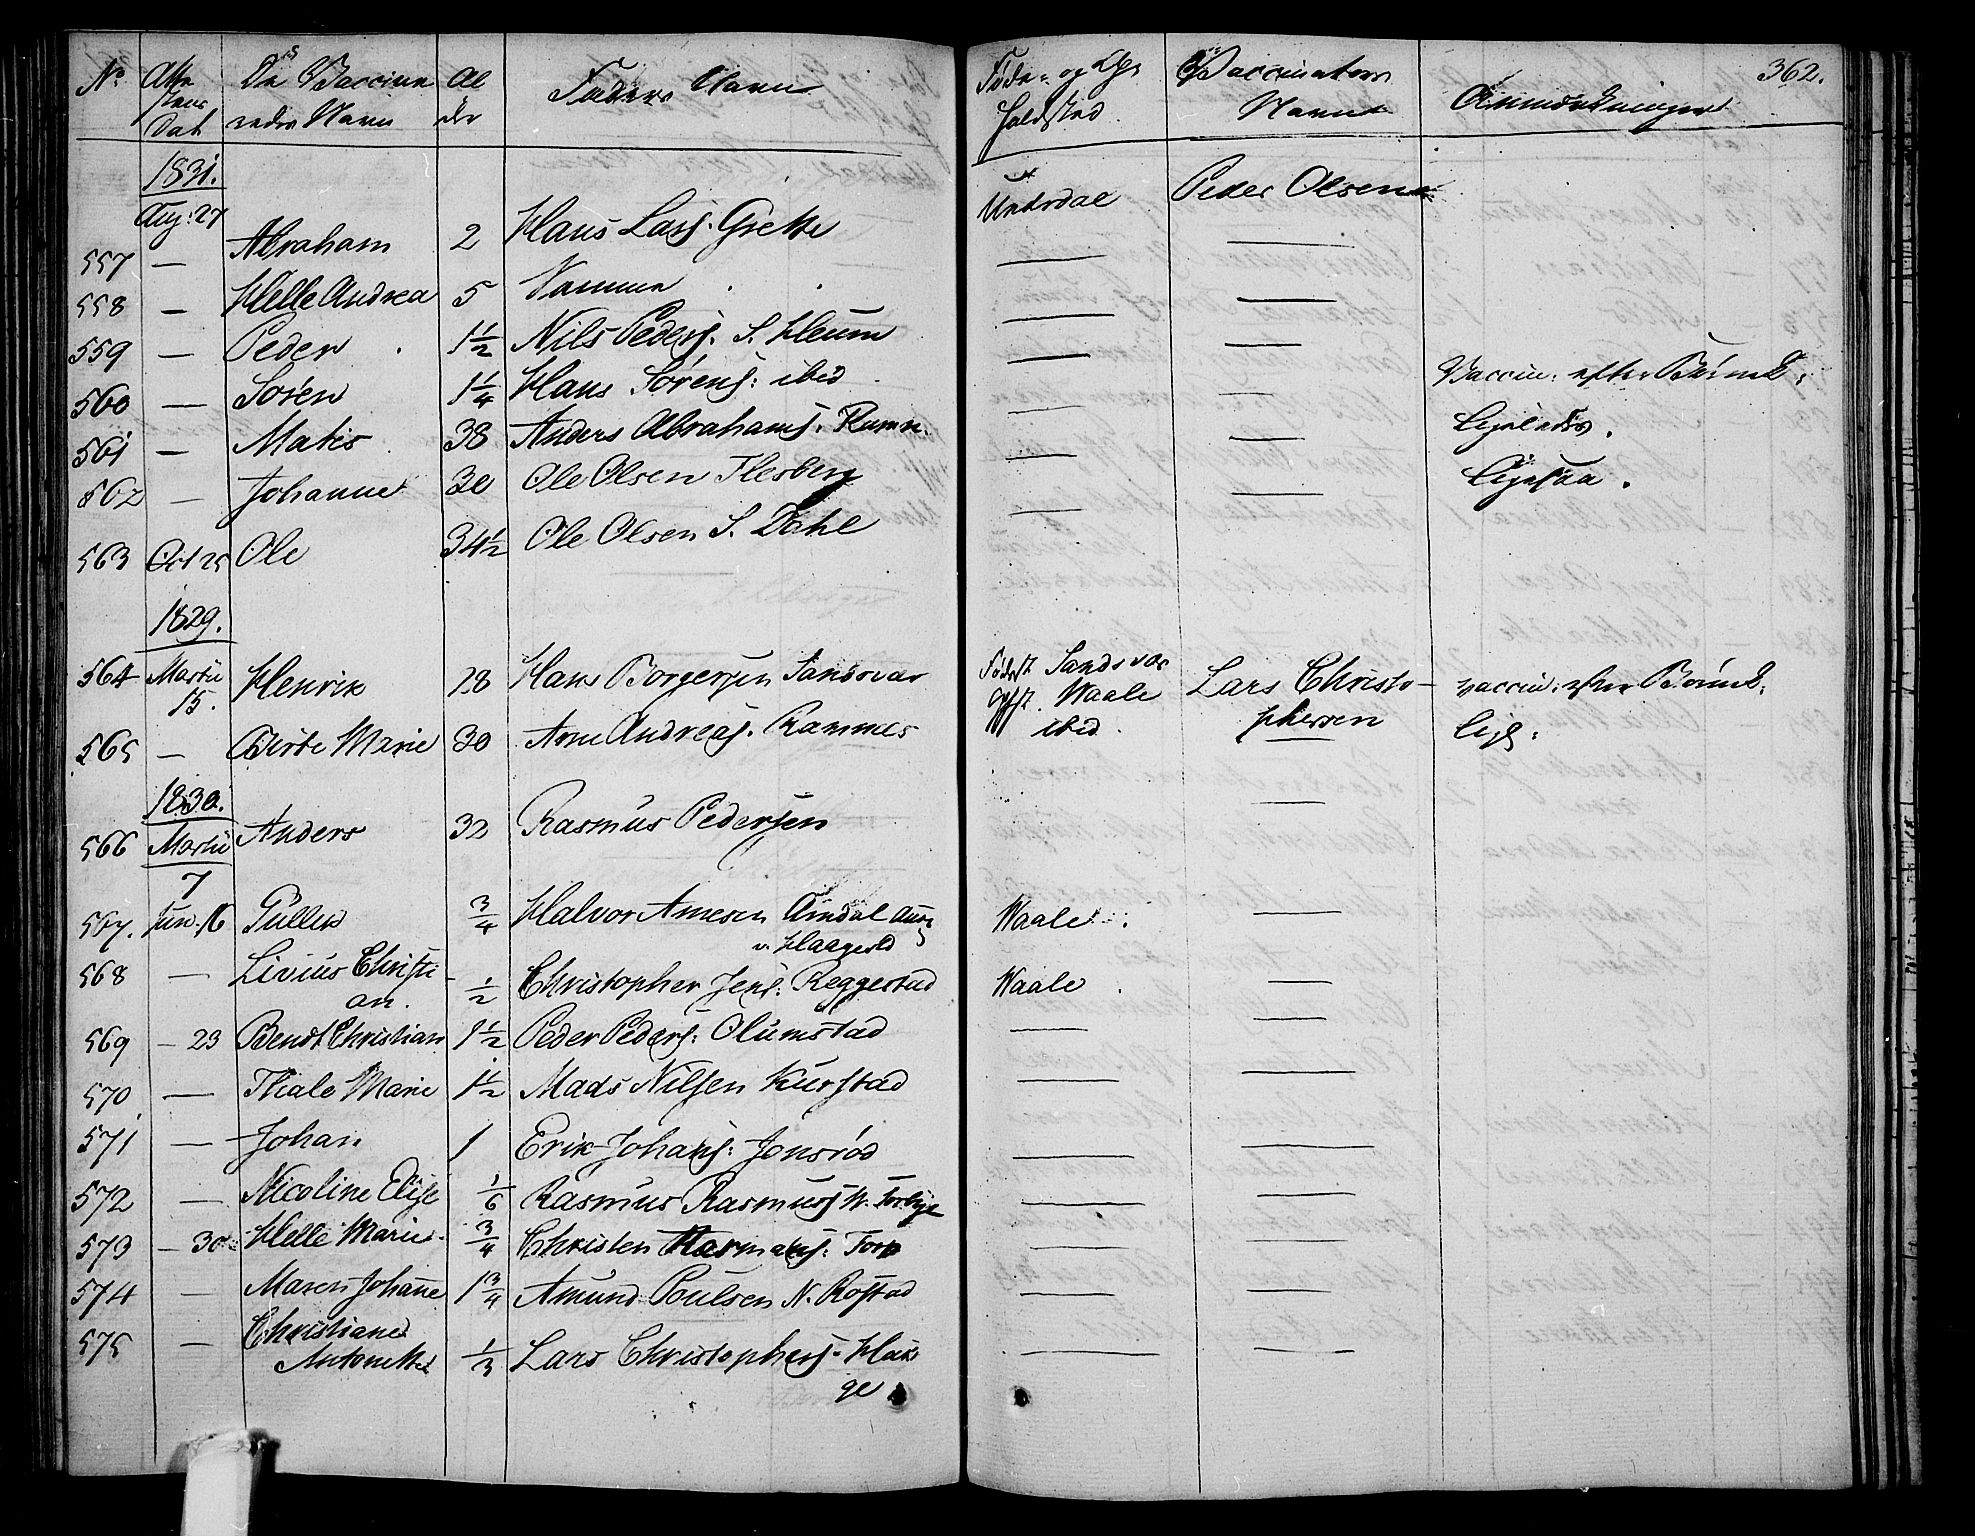 No Atte stens Dat De Vaccine redes Navn Al der Faders Navn Føde- og Op holdsted Vaccinatørs Navn Anmærkninger 362.
1831.
Aug: 27 Undrdal Peder Olsen
557 — Abraham 2 Hans Larſ. Grette — —
558 — Helle Andrea 5 Samme — —
559 — Peder 1½ Nils Pederſ. S. Heum — —
560 — Søren 1¼ Hans Sørenſ: ibid — — Vaccin: efter
561 — Matis 38 Anders Abrahamſ. Ramn. — — Ligeledes.
562 — Johanne 30 Ole Olsen Flesberg — — Ligesaa.
563 Oct 25 Ole 34½ Ole Olsen S. Dahl —
1829.
564 Martii 15. Henrik 28 Hans Borgerſen Sandsvær Fødest Sandsvær Opſt. Waale Lars Christo- phersen vaccin: efter
565 — Birte Marie 30 Arne Andreaſ. Rammes ibid. — lige:
1830.
566 Martii 7 Anders 32 Rasmus Pederſen —
567. Jun. 16 Gullik ¾ Halvor Arnesen Amdal Waale. —
568 — Livius Christi- an. ½ Christopher Jenſ: Reggestad Waale. —
569 — 23 Bendt Christian 1½ Peder Pederſ: Olumstad — —
570 — Thale Marie 1½ Mads Nilſen Kurſtad — —
571 — Johan 1 Erik Johanſ: Jonsrød — —
572 — Nicoline Eliſe 1/6 Rasmus Rasmusſ — —
573 — 30 Helle Marie ¾ Christen Torp — —
574 — Maren Johanne 1¾ Amund Poulsen N. Roſtad — —
575 — Christiane Antonette ⅓ Lars Christopherſ- — —